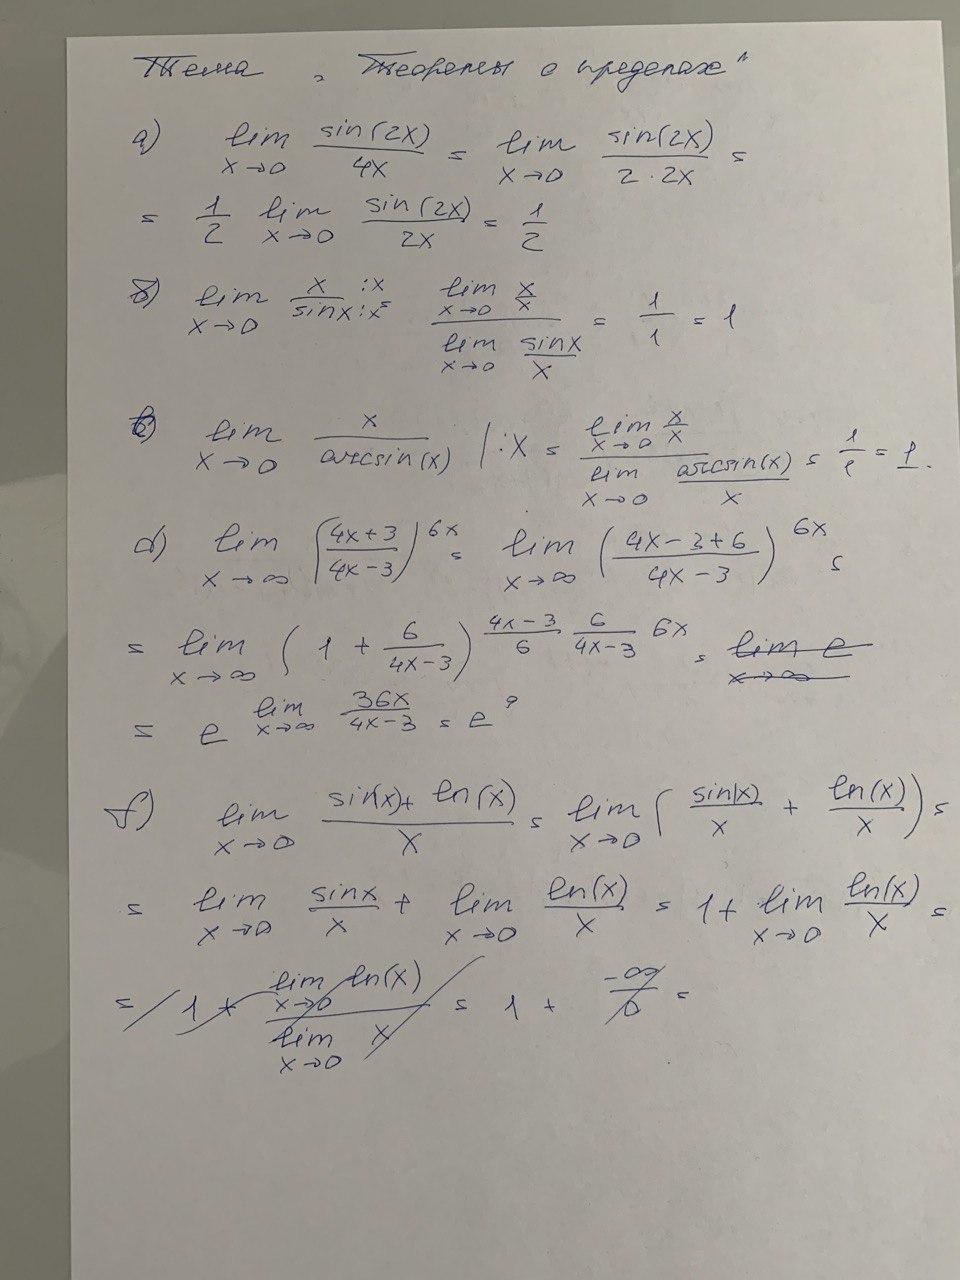 Тема „Теоремы о пределах"
а) lim x→0 sin(2x)/4x = lim x→0 sin(2x)/2·2x =
= 1/2 lim x→0 sin(2x)/2x = 1/2
б) lim x→0 x :x/sinx :x = lim x→0 x/x / lim x→0 sinx/x = 1/1 = 1
в) lim x→0 x/arcsin(x) |:x = lim x→0 x/x / lim x→0 arcsin(x)/x = 1/1 = 1.
d) lim x→∞ (4x+3/4x-3)^6x = lim x→∞ (4x-3+6/4x-3)^6x =
= lim x→∞ (1 + 6/4x-3)^4x-3/6 6/4x-3 6x = lim e x→∞
= e lim x→∞ 36x/4x-3 = e^9
f) lim x→0 sin(x)+ ln(x)/x = lim x→0 (sin(x)/x + ln(x)/x) =
= lim x→0 sinx/x + lim x→0 ln(x)/x = 1+ lim x→0 ln(x)/x =
= 1 + lim x→0 ln(x)/lim x→0 x = 1 + -∞/0 =